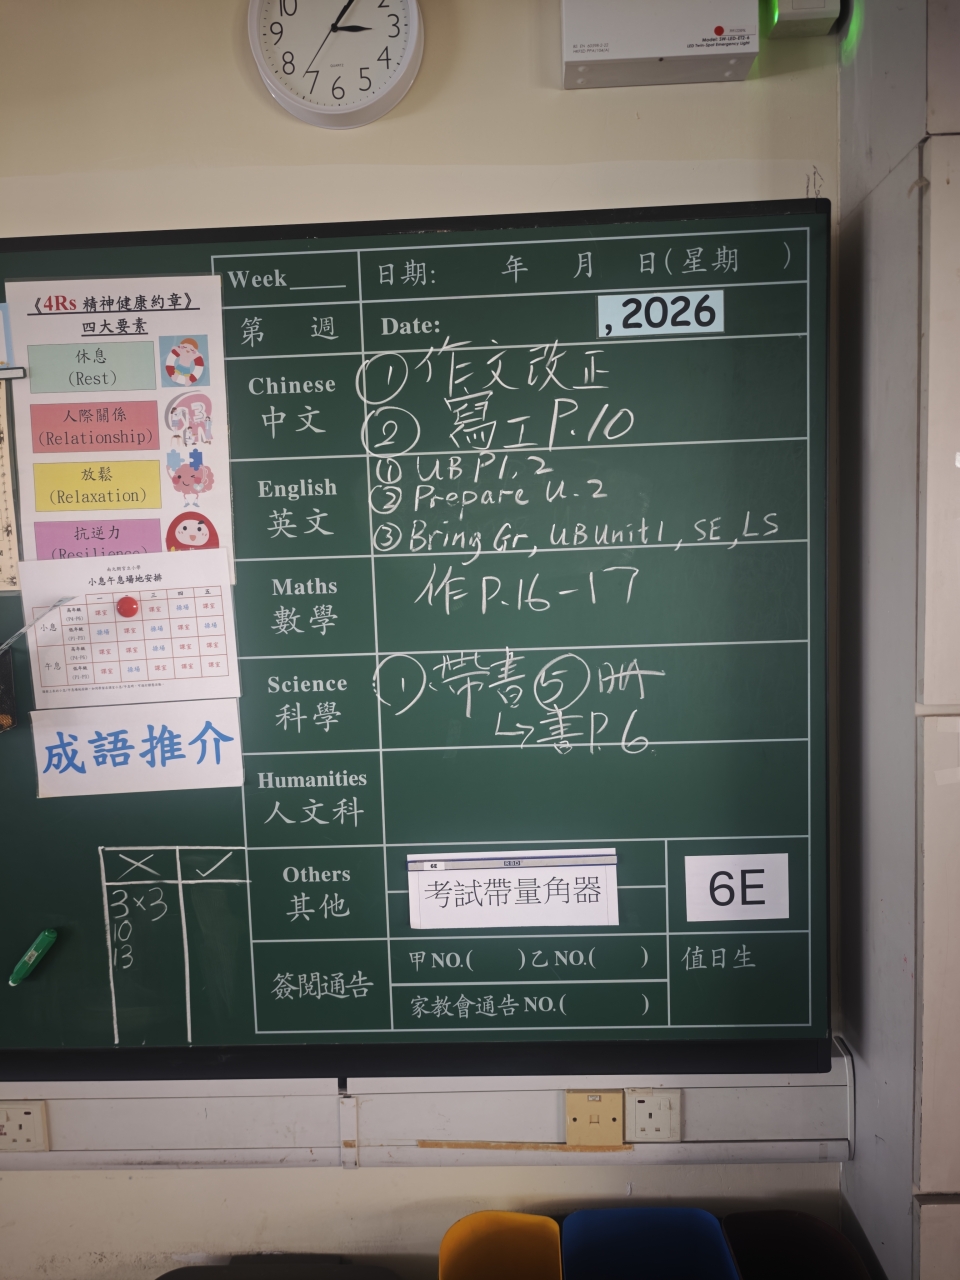 10
2
9
3
8
4
7
6
5
《4Rs 精神健康約章》
四大要素
休息
(Rest)
人際關係
(Relationship)
放鬆
(Relaxation)
抗逆力
(Resilience)
小息午息場地安排
一 三 四 五
小息
午息
成語推介
Week
日期: 年 月 日(星期 )
第 週
Date: , 2026
Chinese
中文
① 作文改正
② 寫工 P.10
English
英文
① UB P1, 2
② Prepare U.2
③ Bring Gr, UB Unit 1, SE, LS
Maths
數學
作 P.16-17
Science
科學
① 帶書 ⑤
↳ 書 P.6
Humanities
人文科
Others
其他
6E
考試帶量角器
6E
簽閱通告
甲 NO.( ) 乙 NO.( )
家教會通告 NO.( )
值日生
× ✓
3×3
10
13